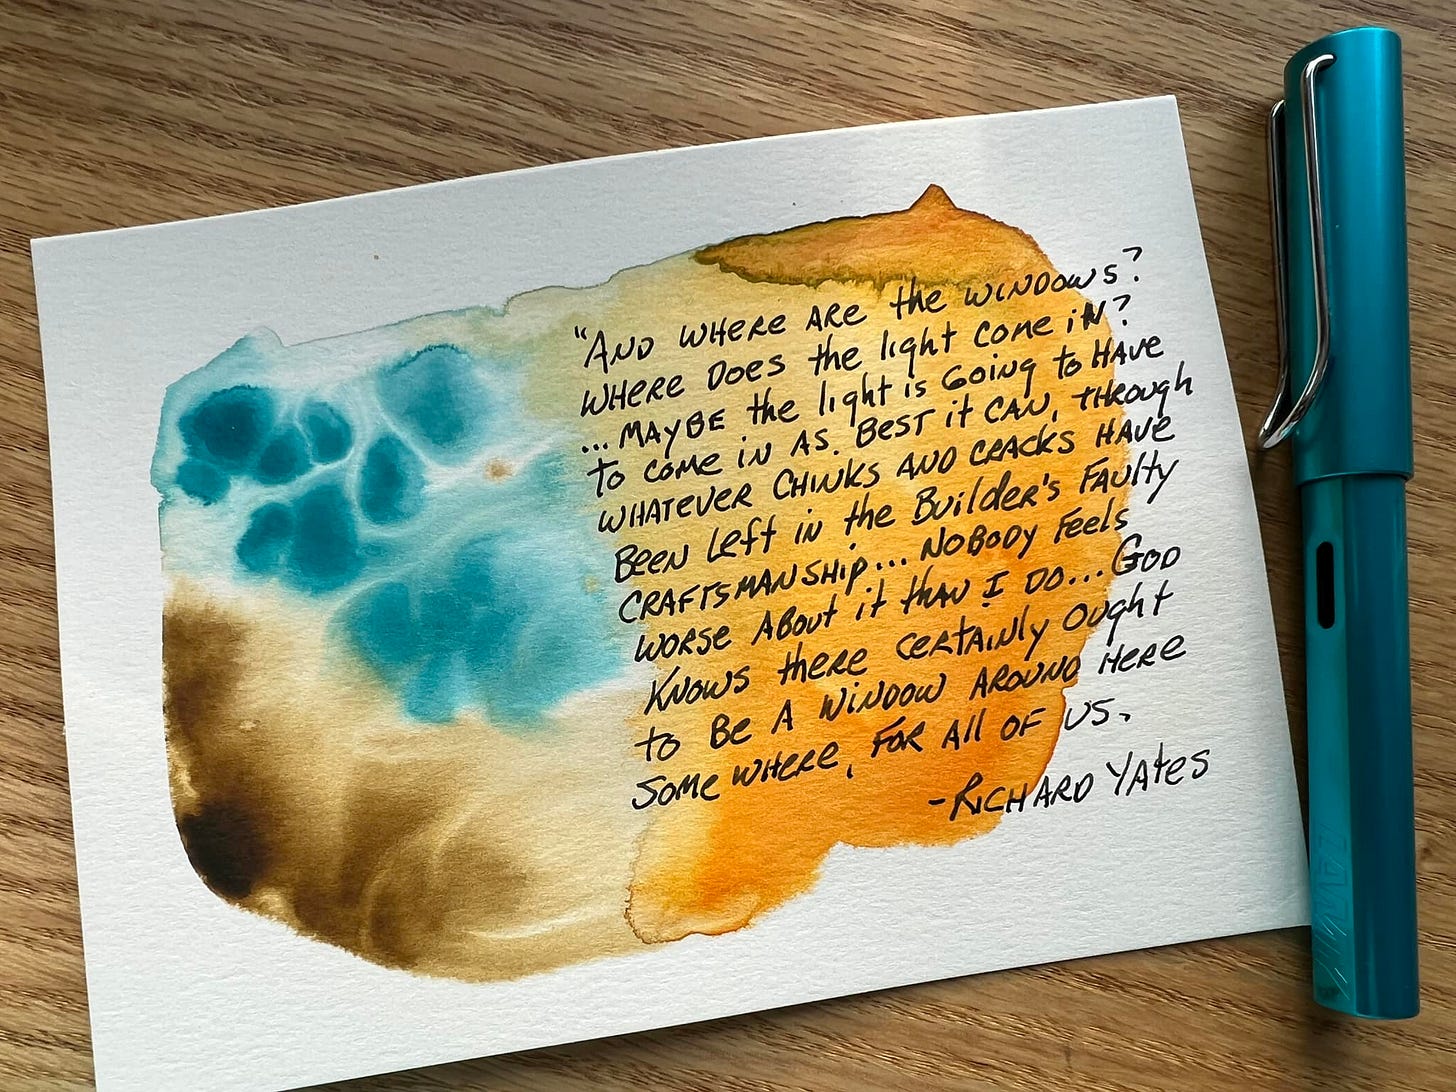 "AND WHERE ARE the WINDOWS?
WHERE DOES the light COME iN?
...MAYBE the light is GOING to HAVE
to COME iN AS. BEST it CAN, THROUGH
WHATEVER CHINKS AND CRACKS HAVE
BEEN Left iN the Builder's FAulty
CRAFTSMANSHip... NOBODY Feels
WORSE ABOUT it thAN I DO... GOD
KNOWS there CERTAiNly OUght
to BE A WiNDOW AROUND HERE
SOME WHERE, FOR All OF US.
-RICHARD YAtes
LAMY